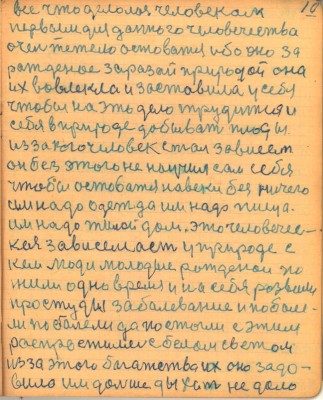 10
все что делолос человекам
первоми для данного человечества
очен тежело остоватя ибо эно за
рожденое заразай природой она
их вовлекла и заставила у себя
чтобы на это дело трудится и
себя в природе добыват плоды
из за кого человек стал зависет
он без этого не научил сам себя
чтобы остоватя навеки без ничего
им надо одежда им надо пища.
им надо жилой дом. это человечес-
кая зависемаст у природе с
кем люди молодые рожденои по
жили одно время и на себя розвили
простуды заболевание и побол-
ли поболели да постоги с этим
распростилися с белом светом
из за этого богатства их оно задо-
вило им дольше дыхат не дало